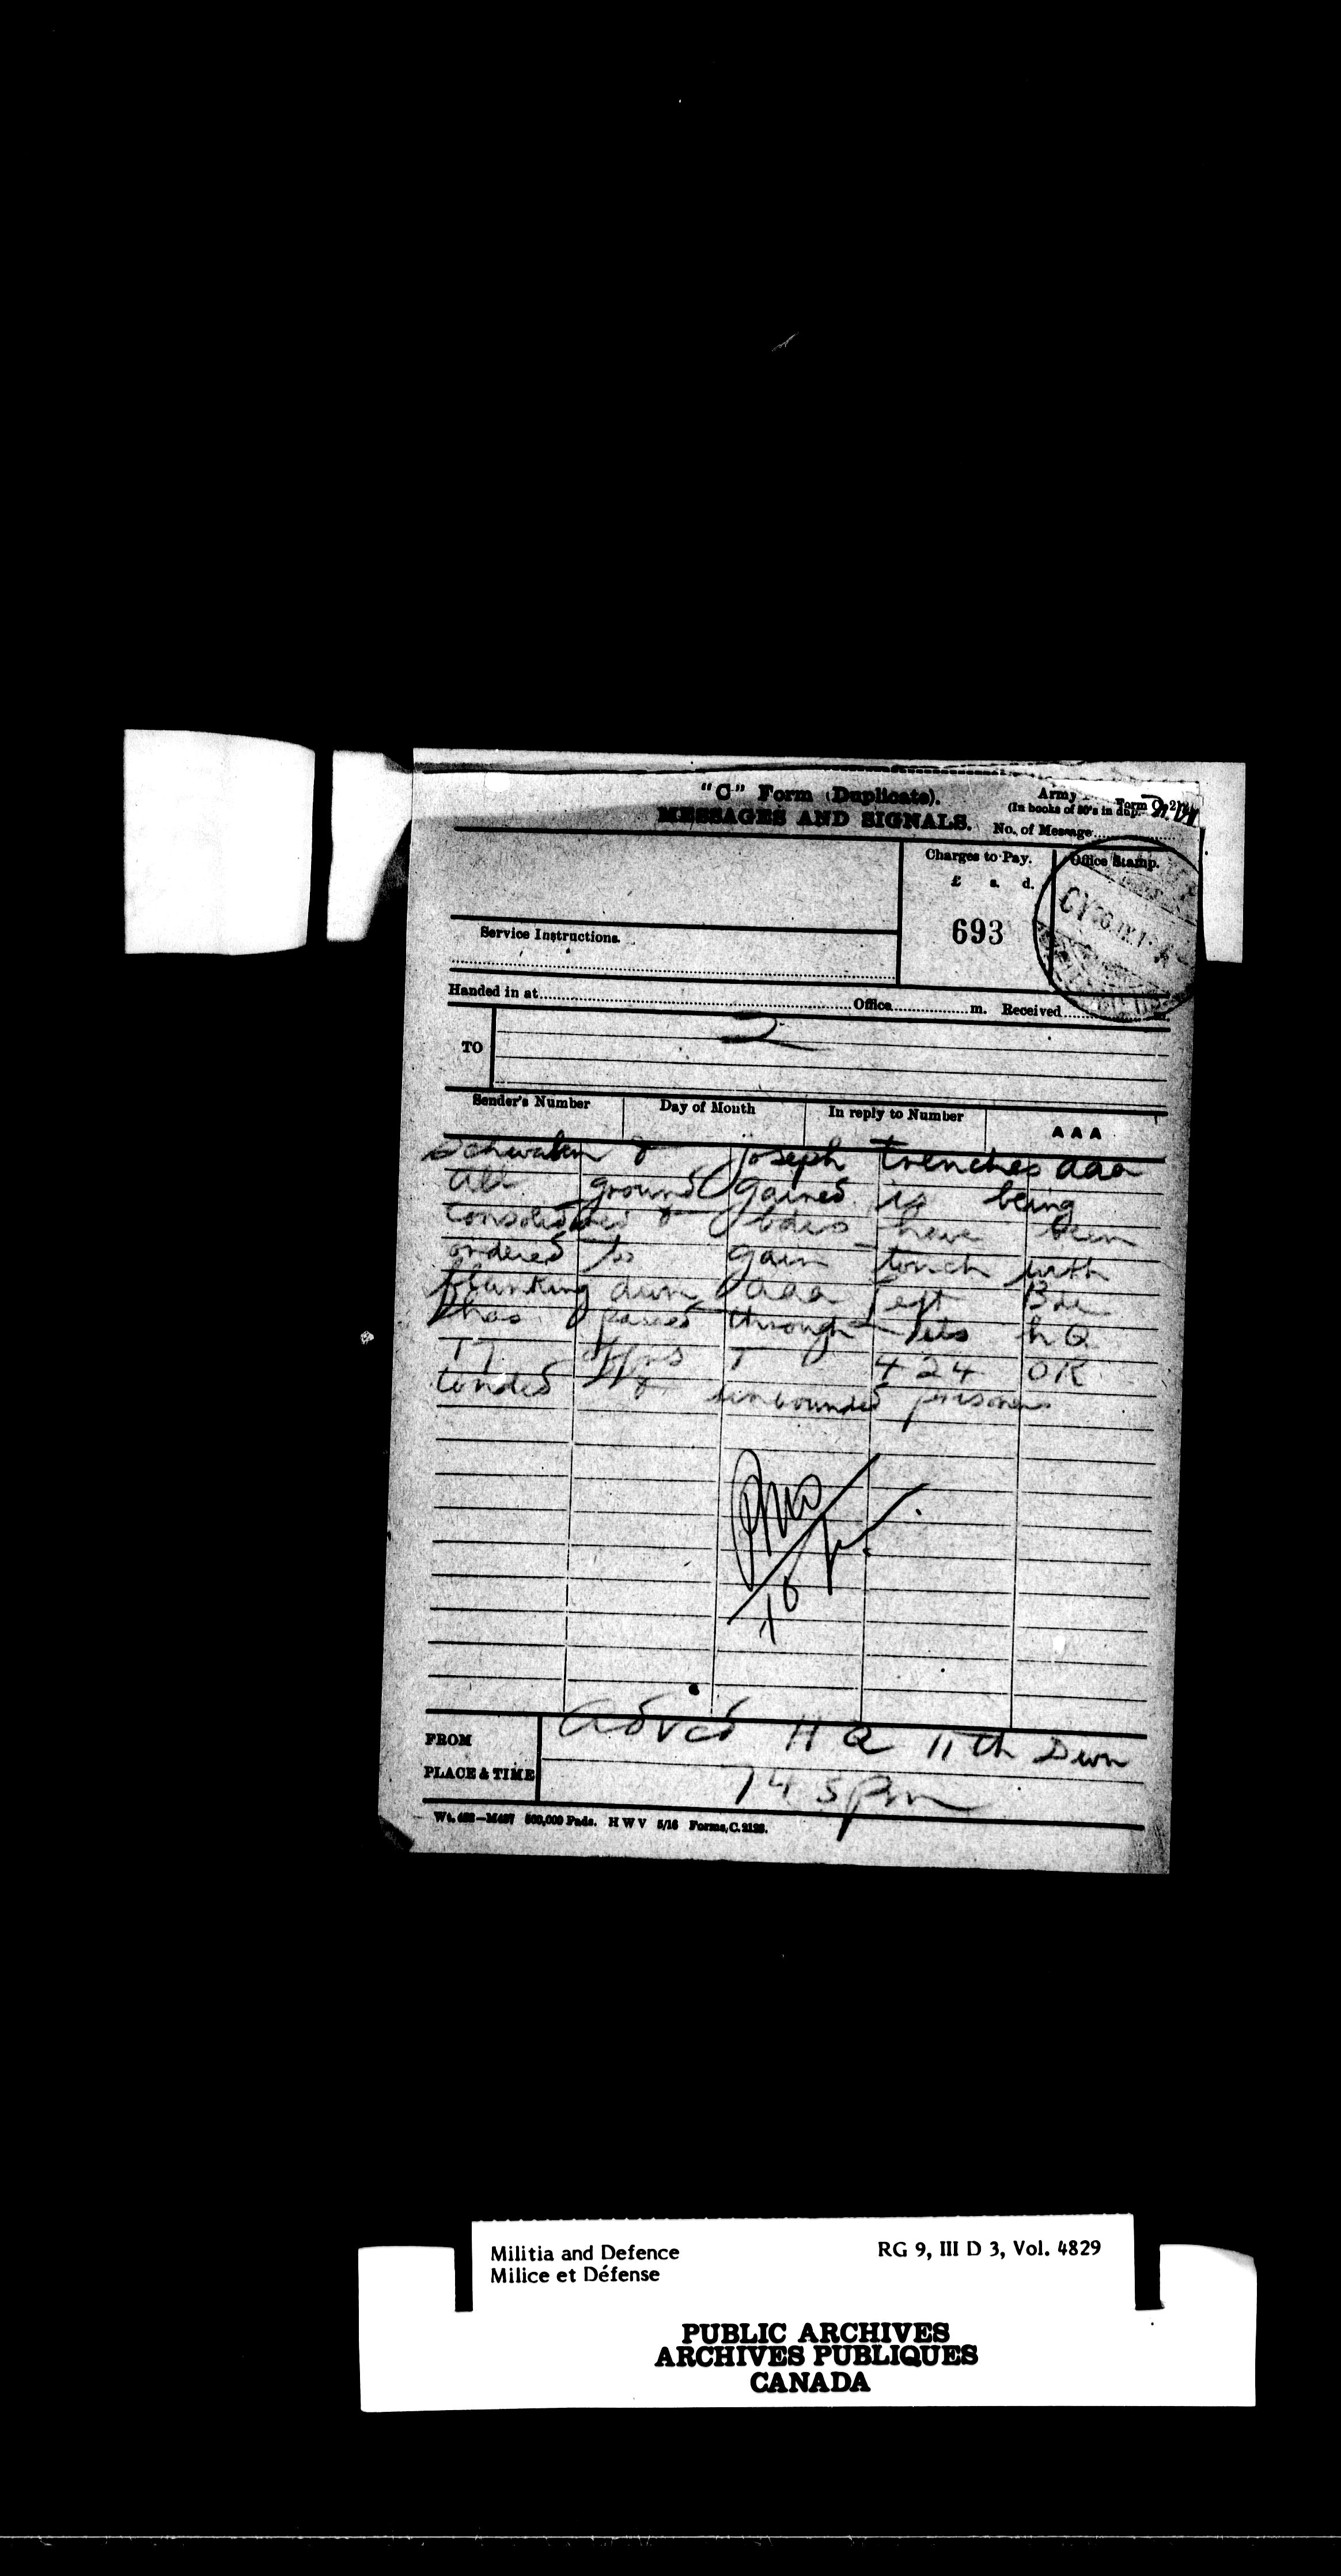 "C" Form (Duplicate).
Army Form C. 2
(In books of 50's in dup.
MESSAGES AND SIGNALS.
No. of Message
Charges to Pay.
£ s. d.
Office Stamp.
693
Service Instructions.
Handed in at Office m. Received
2
TO
Sender's Number Day of Month In reply to Number AAA
Schwaben & Joseph trenches aaa
All ground gained is being
consolidated & bdes have been
ordered to gain touch with
flanking divn aaa left Bde
has passed through its h Q
17 offrs & 424 OR
unwounded prisoners
10
FROM Advcd H Q 11th Divn
PLACE & TIME 745pm
Wt. 432—M437 500,000 Pads. H W V 5/16 Forms, C. 2123.
Militia and Defence RG 9, III D 3, Vol. 4829
Milice et Défense
PUBLIC ARCHIVES
ARCHIVES PUBLIQUES
CANADA